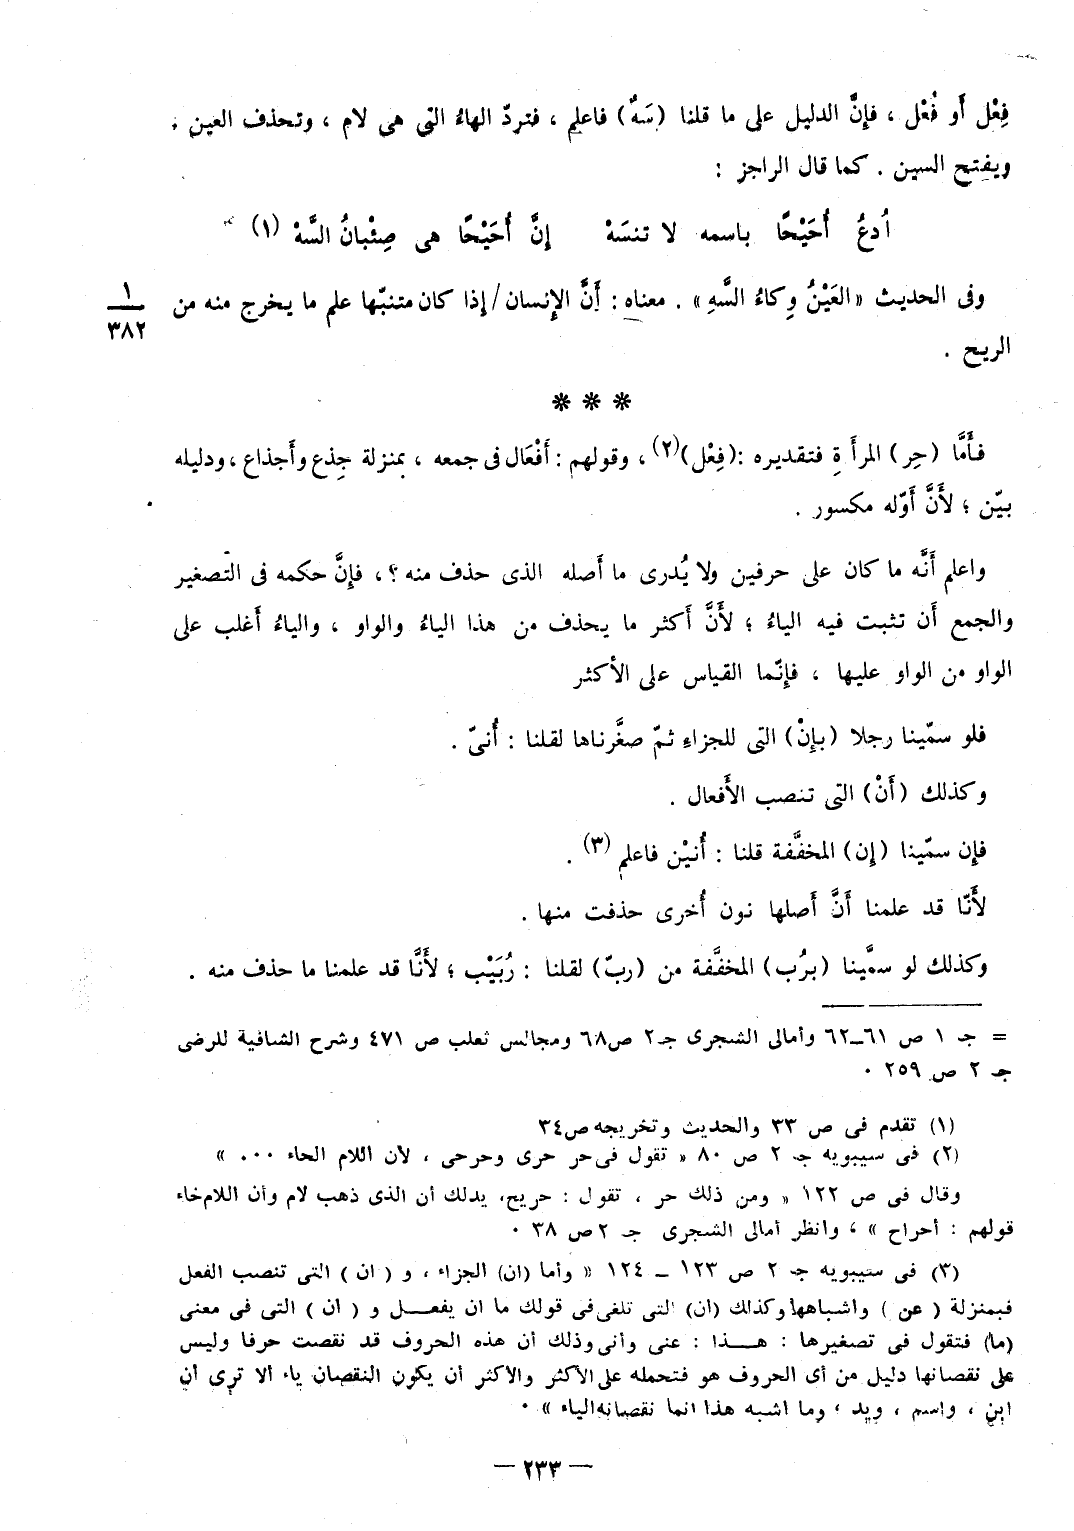 فِعْل أَو فُعْل ، فإِنَّ الدليل على ما قلنا (سَهٌ) فاعلم ، فتردّ الهاءُ التى هى لام ، وتحذف العين ،
ويفتح السين . كما قال الراجز :
اُدعُ أُحَيْحًا باسمه لا تنسَهْ إِنَّ أُحَيْحًا هى صِئْبانُ السَّهْ (١)
وفى الحديث «العَيْنُ وِكاءُ السَّهِ» . معناه : أَنَّ الإِنسان/إِذا كان متنبّها علم ما يخرج منه من
١
٣٨٢
الريح .
* * *
فأَمَّا (حِر) المرأَةِ فتقديره :(فِعْل)(٢) ، وقولهم : أَفْعَال فى جمعه ، بمنزلة جِذع وأَجذاع ، ودليله
بيّن ؛ لأَنَّ أَوّله مكسور .
واعلم أَنَّه ما كان على حرفين ولا يُدرى ما أَصله الذى حذف منه ؟ ، فإِنَّ حكمه فى التصغير
والجمع أَن تثبت فيه الياءُ ؛ لأَنَّ أَكثر ما يحذف من هذا الياءُ والواو ، والياءُ أَغلب على
الواو من الواو عليها ، فإِنّما القياس على الأَكثر
فلو سمّينا رجلا (بإِنْ) التى للجزاءِ ثمّ صغَّرناها لقلنا : أُنىّ .
وكذلك (أَنْ) التى تنصب الأَفعال .
فإِن سمّينا (إِن) المخفَّفة قلنا : أُنيْن فاعلم (٣) .
لأَنّا قد علمنا أَنَّ أَصلها نون أُخرى حذفت منها .
وكذلك لو سمَّينا (برُب) المخفَّفة من (ربّ) لقلنا : رُبَيْب ؛ لأَنَّا قد علمنا ما حذف منه .
= جـ ١ ص ٦١–٦٢ وأمالى الشجرى جـ٢ ص٦٨ ومجالس ثعلب ص ٤٧١ وشرح الشافية للرضى
جـ ٢ ص ٢٥٩ ٠
(١) تقدم فى ص ٣٣ والحديث وتخريجه ص٣٤
(٢) فى سيبويه جـ ٢ ص ٨٠ « تقول فى حر حرى وحرحى ، لأن اللام الحاء ٠٠٠ »
وقال فى ص ١٢٢ « ومن ذلك حر ، تقول : حريح، يدلك أن الذى ذهب لام وأن اللام حاء
قولهم : أحراح » ، وانظر أمالى الشجرى جـ ٢ ص ٣٨ ٠
(٣) فى سيبويه جـ ٢ ص ١٢٣ – ١٢٤ « وأما (ان) الجزاء ، و ( ان ) التى تنصب الفعل
فبمنزلة ( عن ) واشباهها وكذلك (ان) التى تلغى فى قولك ما ان يفعــل و ( ان ) التى فى معنى
(ما) فتقول فى تصغيرها : هــذا : عنى وأنى وذلك أن هذه الحروف قد نقصت حرفا وليس
على نقصانها دليل من أى الحروف هو فتحمله على الأكثر والأكثر أن يكون النقصان ياء ألا ترى أن
ابن ، واسم ، ويد ، وما اشبه هذا انما نقصانه الياء » ٠
— ٢٣٣ —